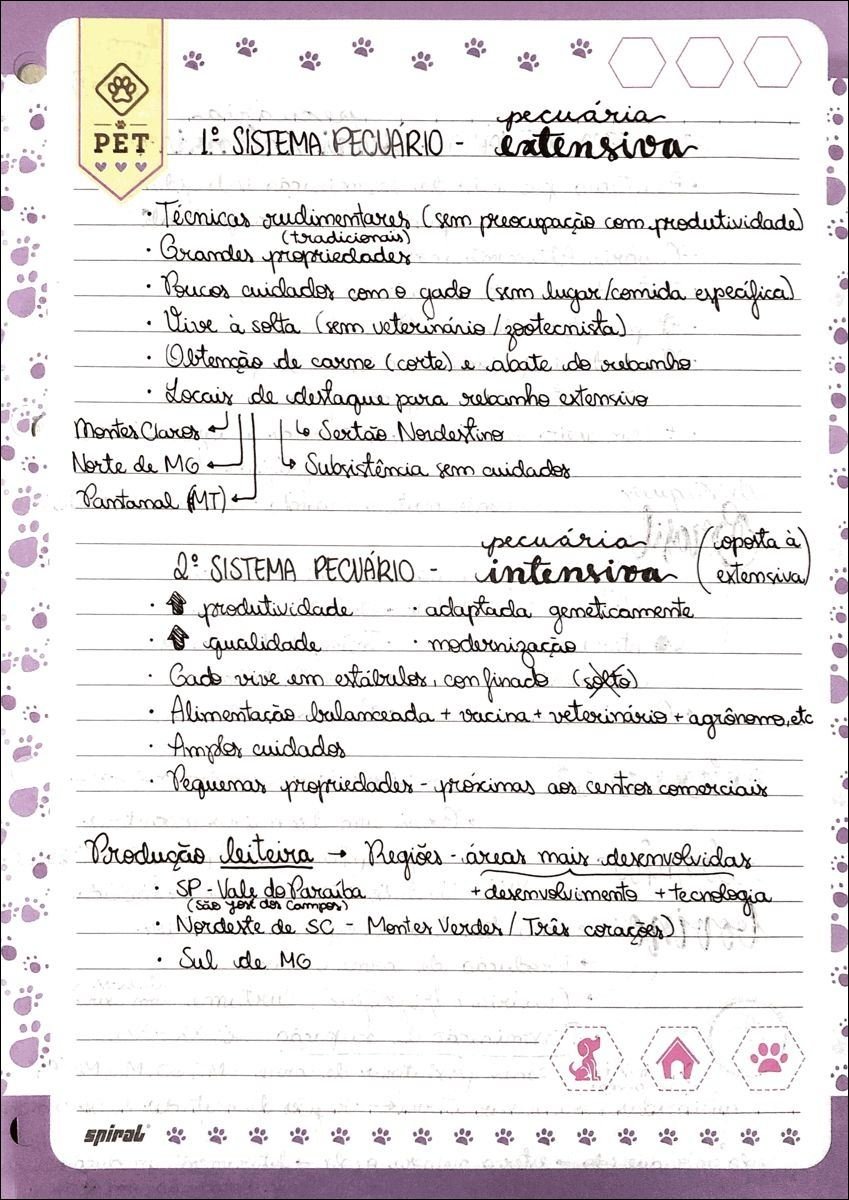 PET
pecuária
1º SISTEMA PECUÁRIO - extensiva
• Técnicas rudimentares (sem preocupação com produtividade)
(tradicionais)
• Grandes propriedades
• Poucos cuidados com o gado (sem lugar/comida específica)
• Vive à solta (sem veterinário / zootecnista)
• Obtenção de carne (corte) e abate do rebanho
• Locais de destaque para rebanho extensivo
Montes Claros ↳ Sertão Nordestino
Norte de MG ↳ Subsistência sem cuidados
Pantanal (MT)
pecuária (oposta à
2º SISTEMA PECUÁRIO - intensiva extensiva)
• ⬆ produtividade • adaptada geneticamente
• ⬆ qualidade • modernização
• Gado vive em estábulos, confinado (solto)
• Alimentação balanceada + vacina + veterinário + agrônomo, etc
• Amplos cuidados
• Pequenas propriedades - próximas aos centros comerciais
Produção leiteira → Regiões - áreas mais desenvolvidas
• SP - Vale do Paraíba + desenvolvimento + tecnologia
(São José dos Campos)
• Nordeste de SC - Montes Verdes / Três corações)
• Sul de MG
spiral